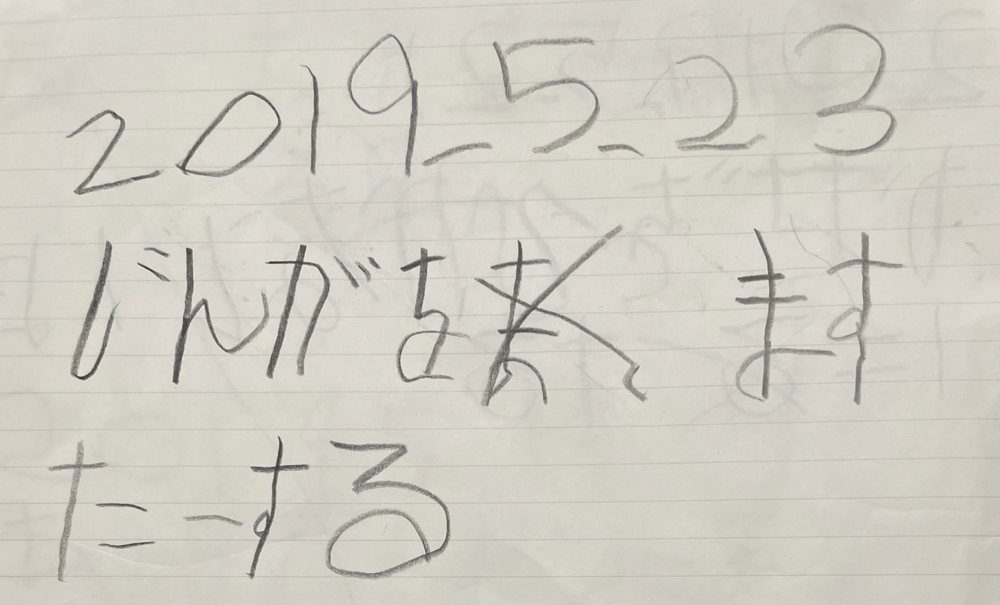 2019_5_23
じんがを ます
たーする